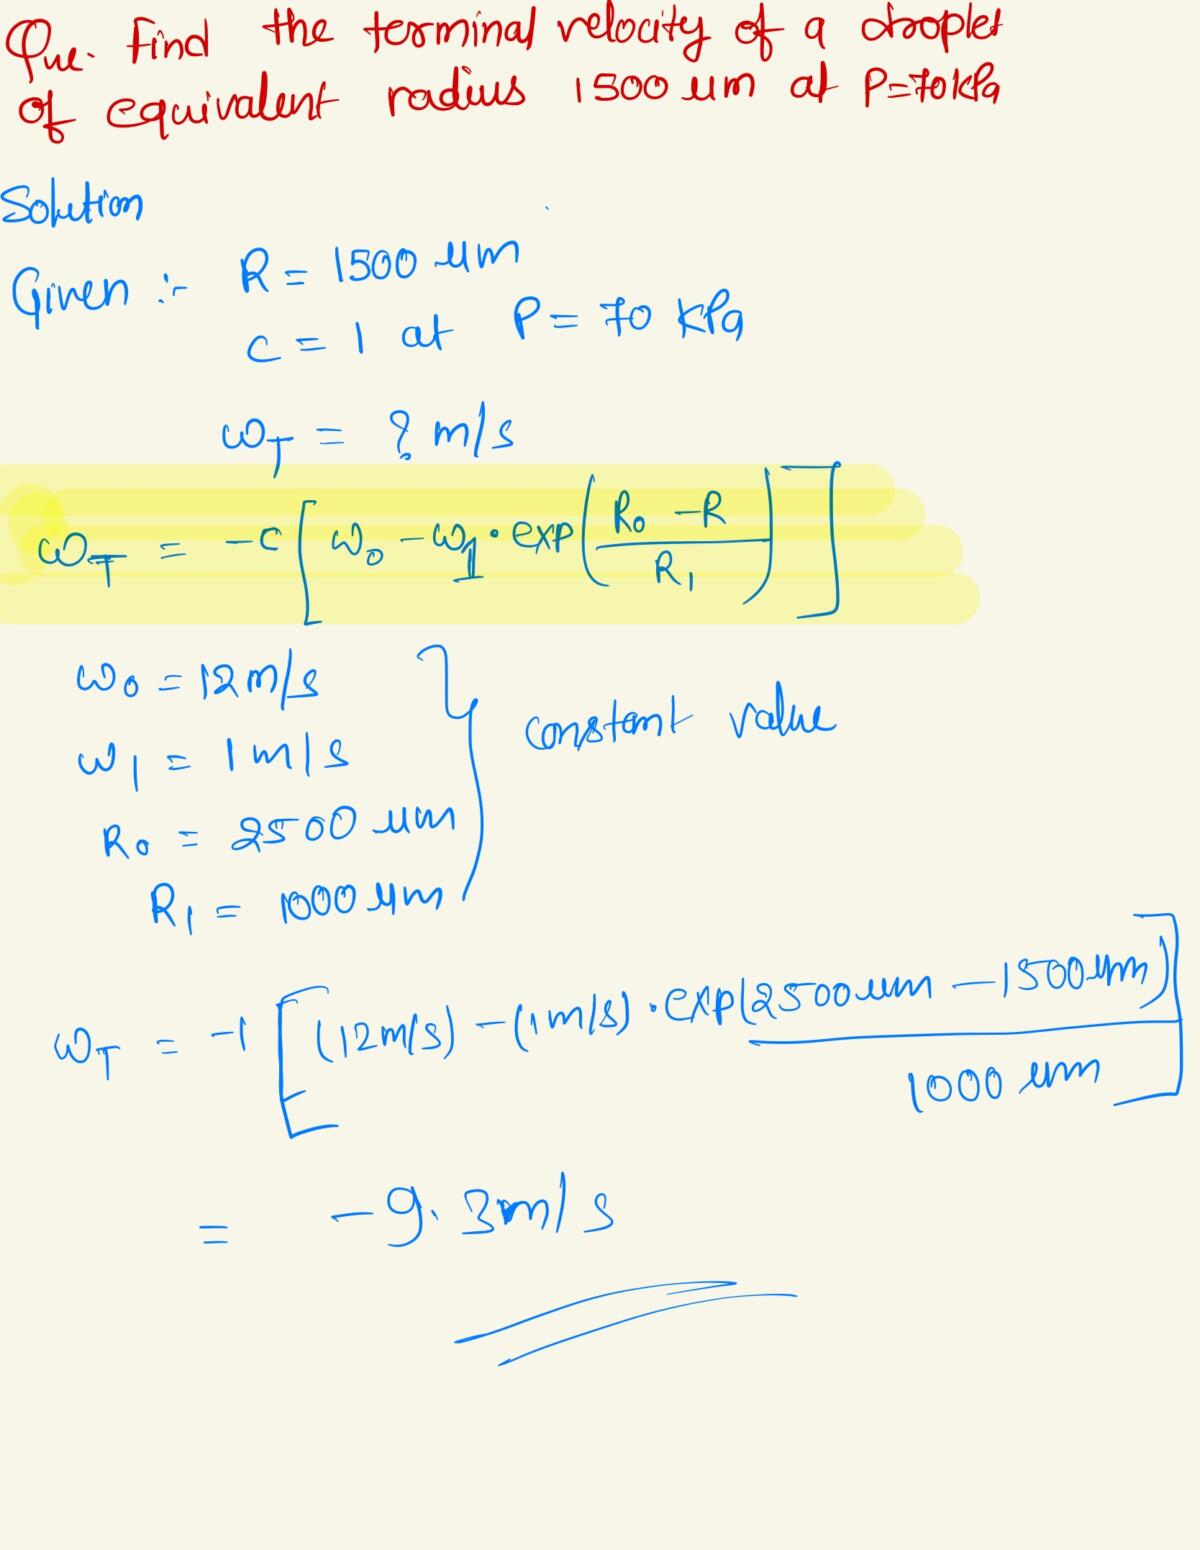 Que. Find the terminal velocity of a droplet
of equivalent radius 1500 um at P=70kPa
Solution
Given :- R = 1500 um
c = 1 at P = 70 kPa
ω_T = ? m/s
ω_T = -c [ ω_0 - ω_1 · exp( (R_0 - R) / R_1 ) ]
ω_0 = 12 m/s
ω_1 = 1 m/s
constant value
R_0 = 2500 um
R_1 = 1000 um
ω_T = -1 [ (12m/s) - (1m/s) · exp(2500um - 1500um) / 1000 um ]
= -9.3m/s